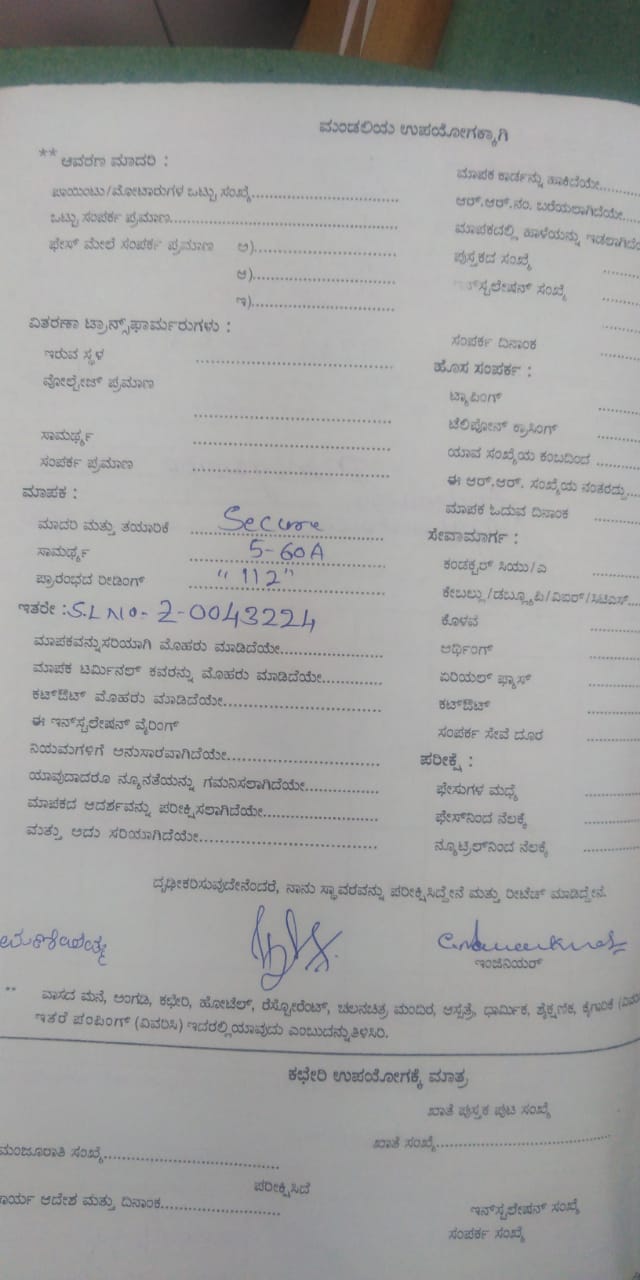 ಮಂಡಲಿಯ ಉಪಯೋಗಕ್ಕಾಗಿ
** ಆವರಣ ಮಾದರಿ :
ಪಾಯಿಂಟು/ಮೋಟಾರುಗಳ ಒಟ್ಟು ಸಂಖ್ಯೆ
ಒಟ್ಟು ಸಂಪರ್ಕ ಪ್ರಮಾಣ
ಫೇಸ್ ಮೇಲೆ ಸಂಪರ್ಕ ಪ್ರಮಾಣ ಅ)
ಆ)
ಇ)
ವಿತರಣಾ ಟ್ರಾನ್ಸ್‌ಫಾರ್ಮರುಗಳು :
ಇರುವ ಸ್ಥಳ
ವೋಲ್ಟೇಜ್ ಪ್ರಮಾಣ
ಸಾಮರ್ಥ್ಯ
ಸಂಪರ್ಕ ಪ್ರಮಾಣ
ಮಾಪಕ :
ಮಾದರಿ ಮತ್ತು ತಯಾರಿಕೆ Secure
ಸಾಮರ್ಥ್ಯ 5-60A
ಪ್ರಾರಂಭದ ರೀಡಿಂಗ್ "112"
ಇತರೇ : S.L No- Z-0043224
ಮಾಪಕವನ್ನು ಸರಿಯಾಗಿ ಮೊಹರು ಮಾಡಿದೆಯೇ
ಮಾಪಕ ಟರ್ಮಿನಲ್ ಕವರನ್ನು ಮೊಹರು ಮಾಡಿದೆಯೇ
ಕಟ್‌ಔಟ್ ಮೊಹರು ಮಾಡಿದೆಯೇ
ಈ ಇನ್‌ಸ್ಟಲೇಷನ್ ವೈರಿಂಗ್
ನಿಯಮಗಳಿಗೆ ಅನುಸಾರವಾಗಿದೆಯೇ
ಯಾವುದಾದರೂ ನ್ಯೂನತೆಯನ್ನು ಗಮನಿಸಲಾಗಿದೆಯೇ
ಮಾಪಕದ ಆದರ್ಶವನ್ನು ಪರೀಕ್ಷಿಸಲಾಗಿದೆಯೇ
ಮತ್ತು ಅದು ಸರಿಯಾಗಿದೆಯೇ
ಮಾಪಕ ಕಾರ್ಡನ್ನು ಹಾಕಿದೆಯೇ
ಆರ್.ಆರ್.ನಂ. ಬರೆಯಲಾಗಿದೆಯೇ
ಮಾಪಕದಲ್ಲಿ ಹಾಳೆಯನ್ನು
ಪುಸ್ತಕದ ಸಂಖ್ಯೆ
ಇನ್‌ಸ್ಟಲೇಷನ್ ಸಂಖ್ಯೆ
ಸಂಪರ್ಕ ದಿನಾಂಕ
ಹೊಸ ಸಂಪರ್ಕ :
ಟ್ಯಾಪಿಂಗ್
ಟೆಲಿಫೋನ್ ಕ್ರಾಸಿಂಗ್
ಯಾವ ಸಂಖ್ಯೆಯ ಕಂಬದಿಂದ
ಈ ಆರ್.ಆರ್. ಸಂಖ್ಯೆಯ ನಂತರದ್ದು
ಮಾಪಕ ಓದುವ ದಿನಾಂಕ
ಸೇವಾಮಾರ್ಗ :
ಕಂಡಕ್ಟರ್ ಸಿಯು/ಎ
ಕೇಬಲ್ಲು/ಡಬ್ಲ್ಯೂಪಿ/ವಿಐಆರ್/ಸಿಟಿಎಸ್
ಕೊಳವೆ
ಅರ್ಥಿಂಗ್
ಏರಿಯಲ್ ಫ್ಯೂಸ್
ಕಟ್‌ಔಟ್
ಸಂಪರ್ಕ ಸೇವೆ ದೂರ
ಪರೀಕ್ಷೆ :
ಫೇಸುಗಳ ಮಧ್ಯೆ
ಫೇಸ್‌ನಿಂದ ನೆಲಕ್ಕೆ
ನ್ಯೂಟ್ರಲ್‌ನಿಂದ ನೆಲಕ್ಕೆ
ದೃಢೀಕರಿಸುವುದೇನೆಂದರೆ, ನಾನು ಸ್ಥಾವರವನ್ನು ಪರೀಕ್ಷಿಸಿದ್ದೇನೆ ಮತ್ತು ರೀಟೆಚ್ ಮಾಡಿದ್ದೇನೆ.
ಇಂಜಿನಿಯರ್
** ವಾಸದ ಮನೆ, ಅಂಗಡಿ, ಕಛೇರಿ, ಹೋಟೆಲ್, ರೆಸ್ಟೋರೆಂಟ್, ಚಲನಚಿತ್ರ ಮಂದಿರ, ಆಸ್ಪತ್ರೆ, ಧಾರ್ಮಿಕ, ಶೈಕ್ಷಣಿಕ, ಕೈಗಾರಿಕೆ
ಇತರೆ ಪಂಪಿಂಗ್ (ವಿವರಿಸಿ) ಇದರಲ್ಲಿ ಯಾವುದು ಎಂಬುದನ್ನು ತಿಳಿಸಿರಿ.
ಕಛೇರಿ ಉಪಯೋಗಕ್ಕೆ ಮಾತ್ರ
ಖಾತೆ ಪುಸ್ತಕ ಪುಟ ಸಂಖ್ಯೆ
ಮಂಜೂರಾತಿ ಸಂಖ್ಯೆ
ಖಾತೆ ಸಂಖ್ಯೆ
ಪರೀಕ್ಷಿಸಿದೆ
ಆದೇಶ ಮತ್ತು ದಿನಾಂಕ
ಇನ್‌ಸ್ಟಲೇಷನ್ ಸಂಖ್ಯೆ
ಸಂಪರ್ಕ ಸಂಖ್ಯೆ